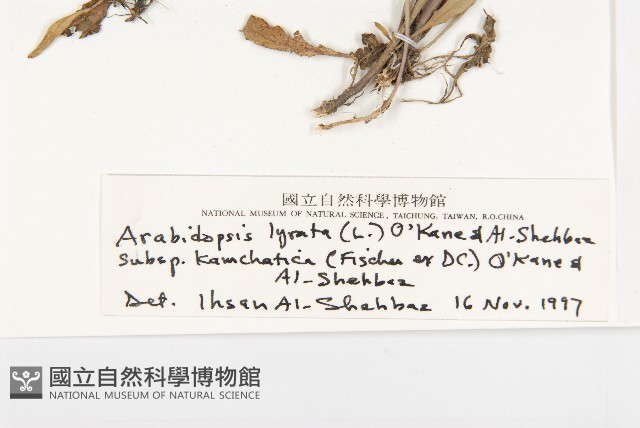 國立自然科學博物館
NATIONAL MUSEUM OF NATURAL SCIENCE, TAICHUNG, TAIWAN, R.O.CHINA
Arabidopsis lyrata (L.) O'Kane & Al-Shehbaz
subsp. kamchatica (Fischer ex DC.) O'Kane &
Al-Shehbaz
Det. Ihsan Al-Shehbaz 16 Nov. 1997
國立自然科學博物館
NATIONAL MUSEUM OF NATURAL SCIENCE